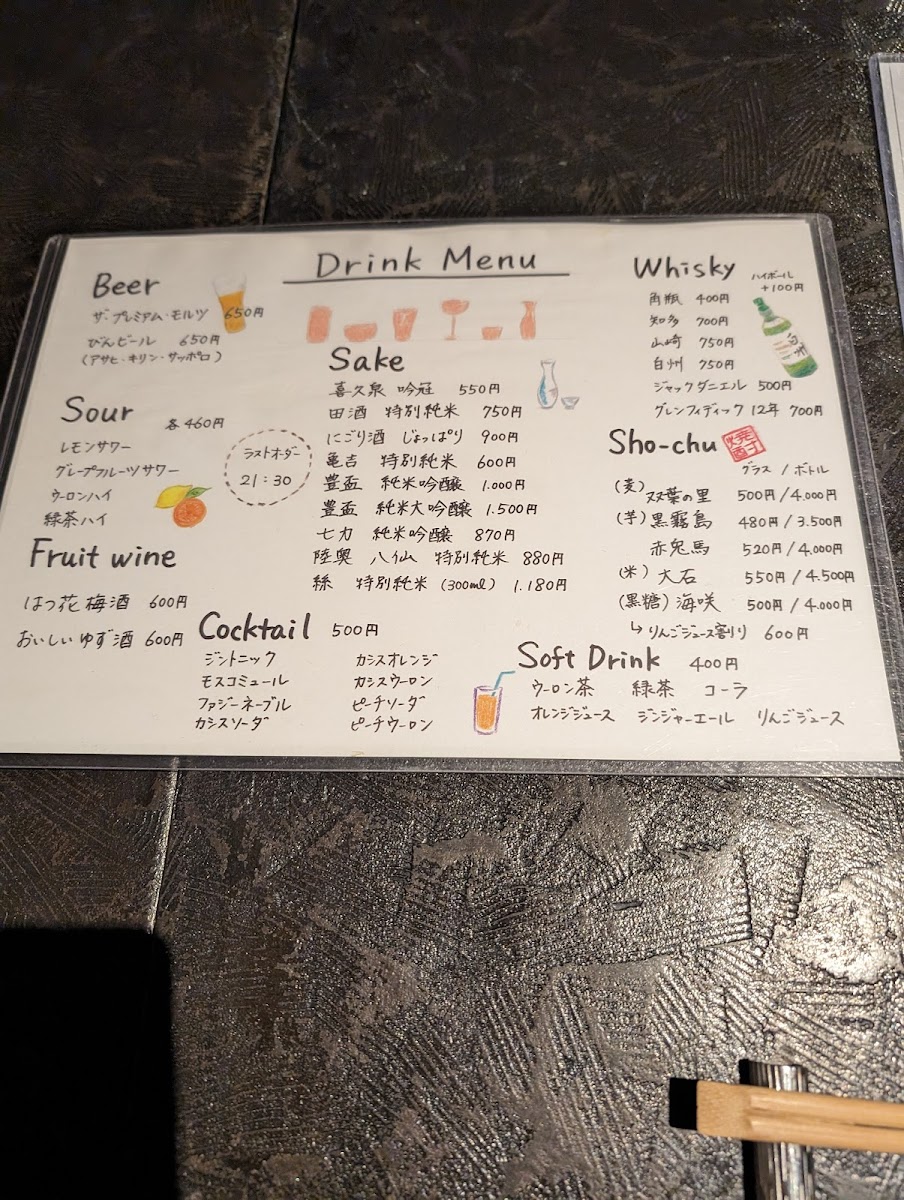 Drink Menu
Beer
ザ・プレミアム・モルツ 650円
びんビール 650円
(アサヒ・キリン・サッポロ)
Sour 各460円
レモンサワー
グレープフルーツサワー
ウーロンハイ
緑茶ハイ
ラストオーダー
21:30
Fruit wine
はつ花梅酒 600円
おいしいゆず酒 600円
Sake
喜久泉 吟冠 550円
田酒 特別純米 750円
にごり酒 じょっぱり 900円
亀吉 特別純米 600円
豊盃 純米吟醸 1.000円
豊盃 純米大吟醸 1.500円
七力 純米吟醸 870円
陸奥 八仙 特別純米 880円
絲 特別純米 (300ml) 1.180円
Cocktail 500円
ジントニック カシスオレンジ
モスコミュール カシスウーロン
ファジーネーブル ピーチソーダ
カシスソーダ ピーチウーロン
Whisky ハイボール
+100円
角瓶 400円
知多 700円
山崎 750円
白州 750円
ジャックダニエル 500円
グレンフィディック 12年 700円
白州
Sho-chu 焼酎
グラス / ボトル
(麦) 双葉の里 500円 / 4.000円
(芋) 黒霧島 480円 / 3.500円
赤兎馬 520円 / 4.000円
(米) 大石 550円 / 4.500円
(黒糖) 海咲 500円 / 4.000円
↳りんごジュース割り 600円
Soft Drink 400円
ウーロン茶 緑茶 コーラ
オレンジジュース ジンジャーエール りんごジュース